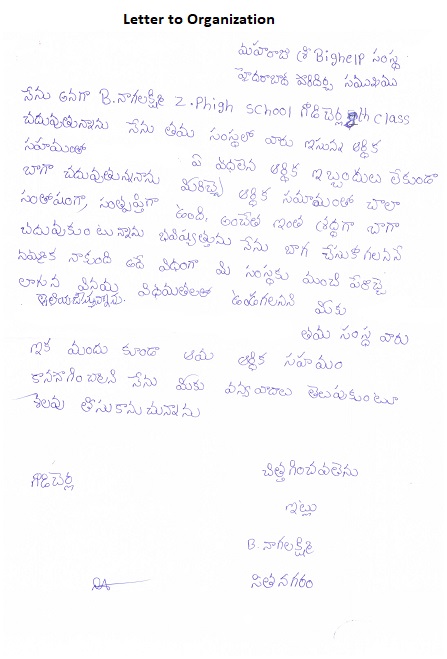 Letter to Organization
మహారాజ శ్రీ BigHelp సంస్థ
హైదరాబాద వారిదివ్య సముఖము
నేను అనగా B.నాగలక్ష్మి Z.Phigh School గొడిచెర్ల 8th class
చదువుతున్నాను నేను తమ సంస్థలో వారు ఇసున్న ఆర్థిక
సహాయంతో ఏ విధమైన ఆర్థిక ఇబ్బందులు లేకుండా
బాగా చదువుతున్నానను మీరిచ్చె ఆర్థిక సహాయంతో చాలా
సంతోషంగా, సంతృప్తిగా ఉంది. అంచేత ఇంత శ్రద్ధగా బాగా
చదువుకుంటున్నాను భవిష్యత్తును నేను బాగ చేసుకొగలననే
నమ్మకం నాకుంది అదే విధంగా మి సంస్థకు మంచి పేరొచ్చె
లాగున వినయ విధేయతలతో ఉండగలనని మీకు
తెలియజేస్తున్నాను.
తమ సంస్థ వారు
ఇక ముందు కూడా ఆమ ఆర్థిక సహాయం
కొనసాగించాలని నేను మీకు ధన్యవాదాలు తెలుపుకుంటూ
శెలవు తీసుకొనుచున్నాను
గొడిచెర్ల
చిత్తగించవలెను
ఇట్లు
B. నాగలక్ష్మి
సీతానగరం